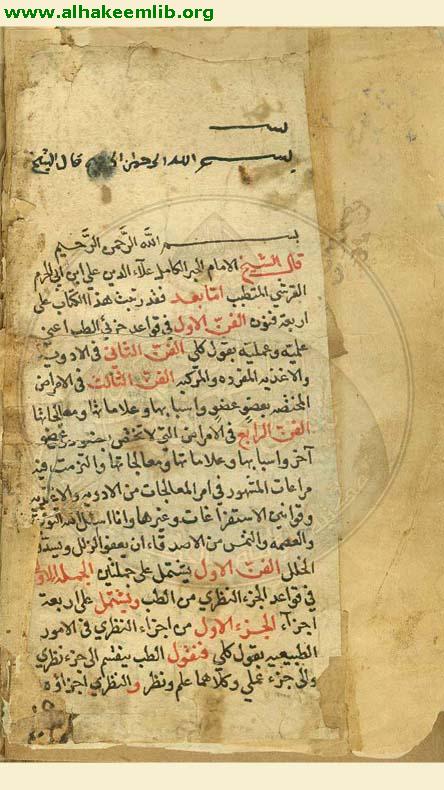 www.alhakeemlib.org
بسم
بسم الله الرحمن الرحيم قال الشيخ
بسم الله الرحمن الرحيم
قال الشيخ الامام الحبر الكامل علآء الدين علي ابن ابي الحرم
القرشي المتطبب اما بعد فقد رتبت هذا الكتاب على
اربعة فنون الفن الاول في قواعد جزئي الطب اعني
علميه وعمليه بقول كلي الفن الثاني في الادويه
والاغذيه المفرده والمركبه الفن الثالث في الامراض
المختصه بعضو عضو واسبابها وعلاماتها ومعالجاتها
الفن الرابع في الامراض التي لا تختص بعضو دون عضو
آخر واسبابها وعلاماتها ومعالجاتها والتزمت فيه
مراعات المشهور في امر المعالجات من الادويه والاغذيه
وقوانين الاستفراغات وغيرها وانا اسئل الله التوفيق
والعصمه والتمس من الاصدقاء ان يعفو الزلل ويسدد
الخلل الفن الاول يشتمل على جملتين الجملة الاولى
في قواعد الجزء النظري من الطب ويشتمل على اربعة
اجزآء الجزء الاول من اجزاء النظري في الامور
الطبيعيه بقول كلي فنقول الطب ينقسم الى جزء نظري
والى جزء عملي وكلاهما علم ونظر والنظري اجزاؤه